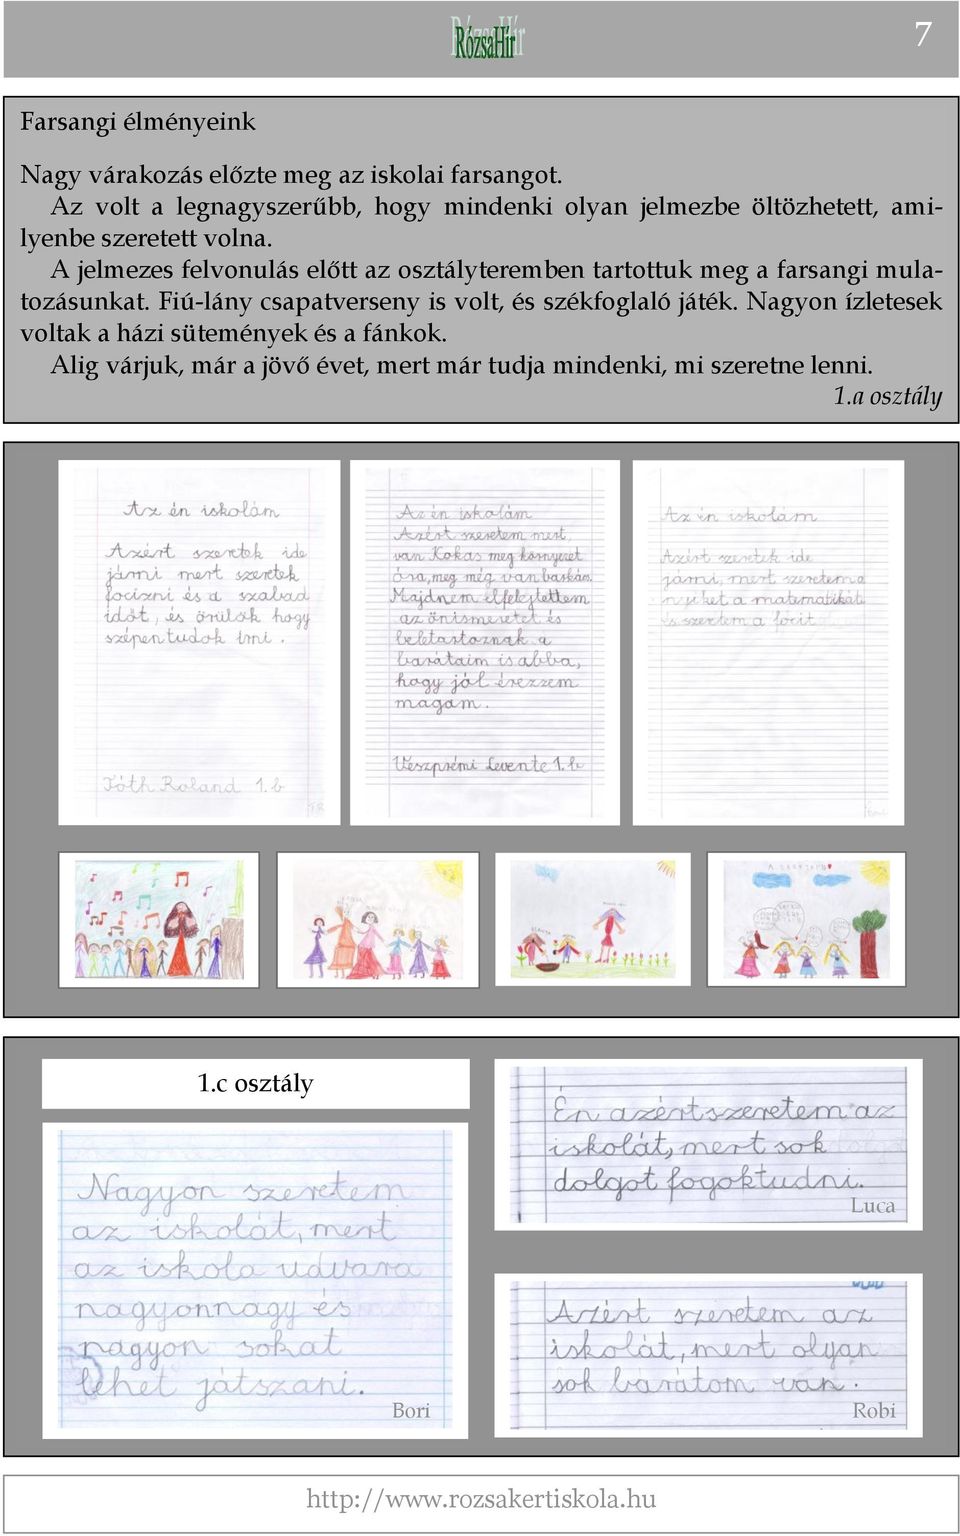 RózsaHír
7
Farsangi élményeink
Nagy várakozás előzte meg az iskolai farsangot.
Az volt a legnagyszerűbb, hogy mindenki olyan jelmezbe öltözhetett, ami-
lyenbe szeretett volna.
A jelmezes felvonulás előtt az osztályteremben tartottuk meg a farsangi mula-
tozásunkat. Fiú-lány csapatverseny is volt, és székfoglaló játék. Nagyon ízletesek
voltak a házi sütemények és a fánkok.
Alig várjuk, már a jövő évet, mert már tudja mindenki, mi szeretne lenni.
1.a osztály
Az én iskolám
Azért szeretek ide
járni mert szeretek
focizni és a szabad
időt, és örülök hogy
szépen tudok írni.
Tóth Roland 1.b
Az én iskolám
Azért szeretem mert,
van Kokas meg környezet
óra, meg még van barkám.
Majdnem elfelejtettem
az önismeretet és
beletartoznak a
barátaim is abba,
hogy jól érezzem
magam.
Veszprémi Levente 1.b
Az én iskolám
Azért szeretek ide
járni, mert szeretem a
nyiket a matematikát
és szeretem a fócit
1.c osztály
Nagyon szeretem
az iskolát, mert
az iskola udvara
nagyonnagy és
nagyon sokat
lehet játszani.
Bori
Én azért szeretem az
iskolát, mert sok
dolgot fogok tudni.
Luca
Azért szeretem az
iskolát, mert olyan
sok barátom van.
Robi
http://www.rozsakertiskola.hu